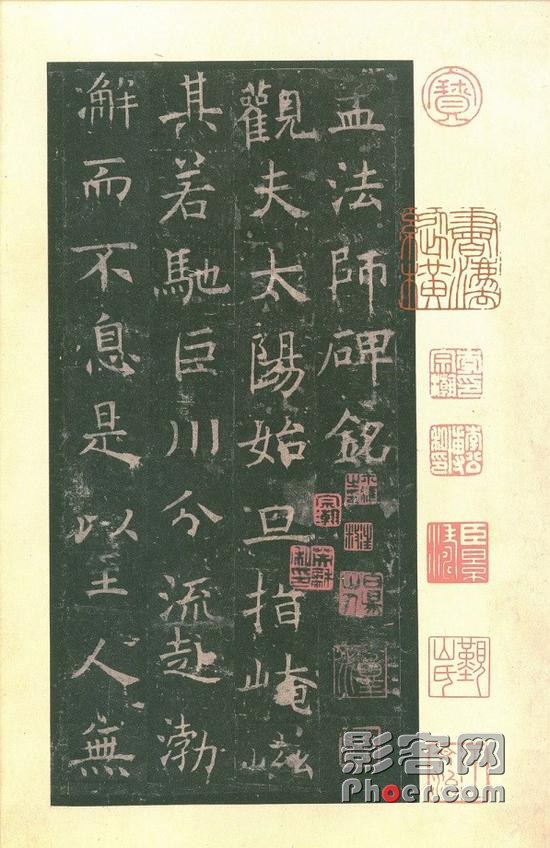 孟法師碑銘
觀夫太陽始旦指崦嵫
其若馳巨川分流赴渤
澥而不息是以至人無
寶
影客网
Phoer.com